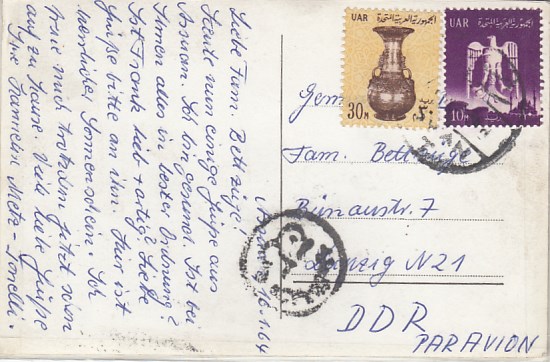 Assuan, 16.1.64
Liebe Fam. Bettzüge!
Heute nun einige Grüße aus
Assuan. Ich bin gesund. Ist bei
Ihnen alles in bester Ordnung?
Ist Frank lieb + artig? Liebe
Grüße bitte an ihn. Hier ist
herrlicher Sonnenschein. Ich
freue mich trotzdem jetzt schon
auf zu Hause. Viele liebe Grüße
Ihre Hannelore Metz-
UAR الجمهورية العربية المتحدة
30 M
UAR الجمهورية العربية المتحدة
10 M
Fam. Bettzüge
Bünaustr. 7
Leipzig N21
DDR
PAR AVION